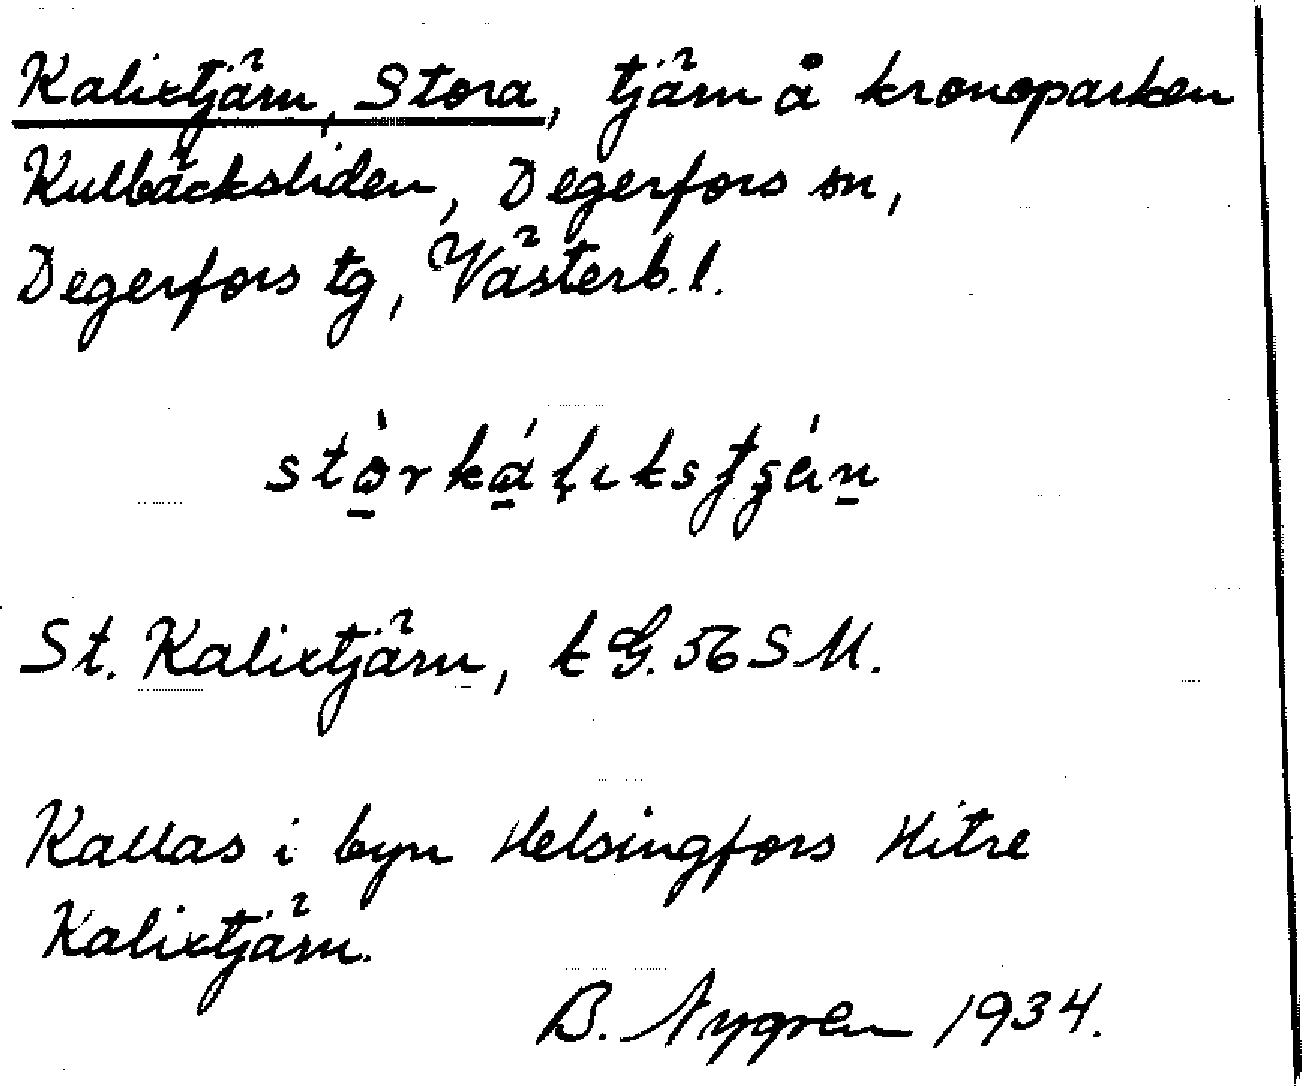 Kalixtjärn, Stora, tjärn å kronoparken
Kulbäcksliden, Degerfors sn,
Degerfors tg, Västerb. l.
St. Kalixtjärn, k G. 56 SM.
Kallas i byn Helsingfors Hitre
Kalixtjärn.
B. Nygren 1934.